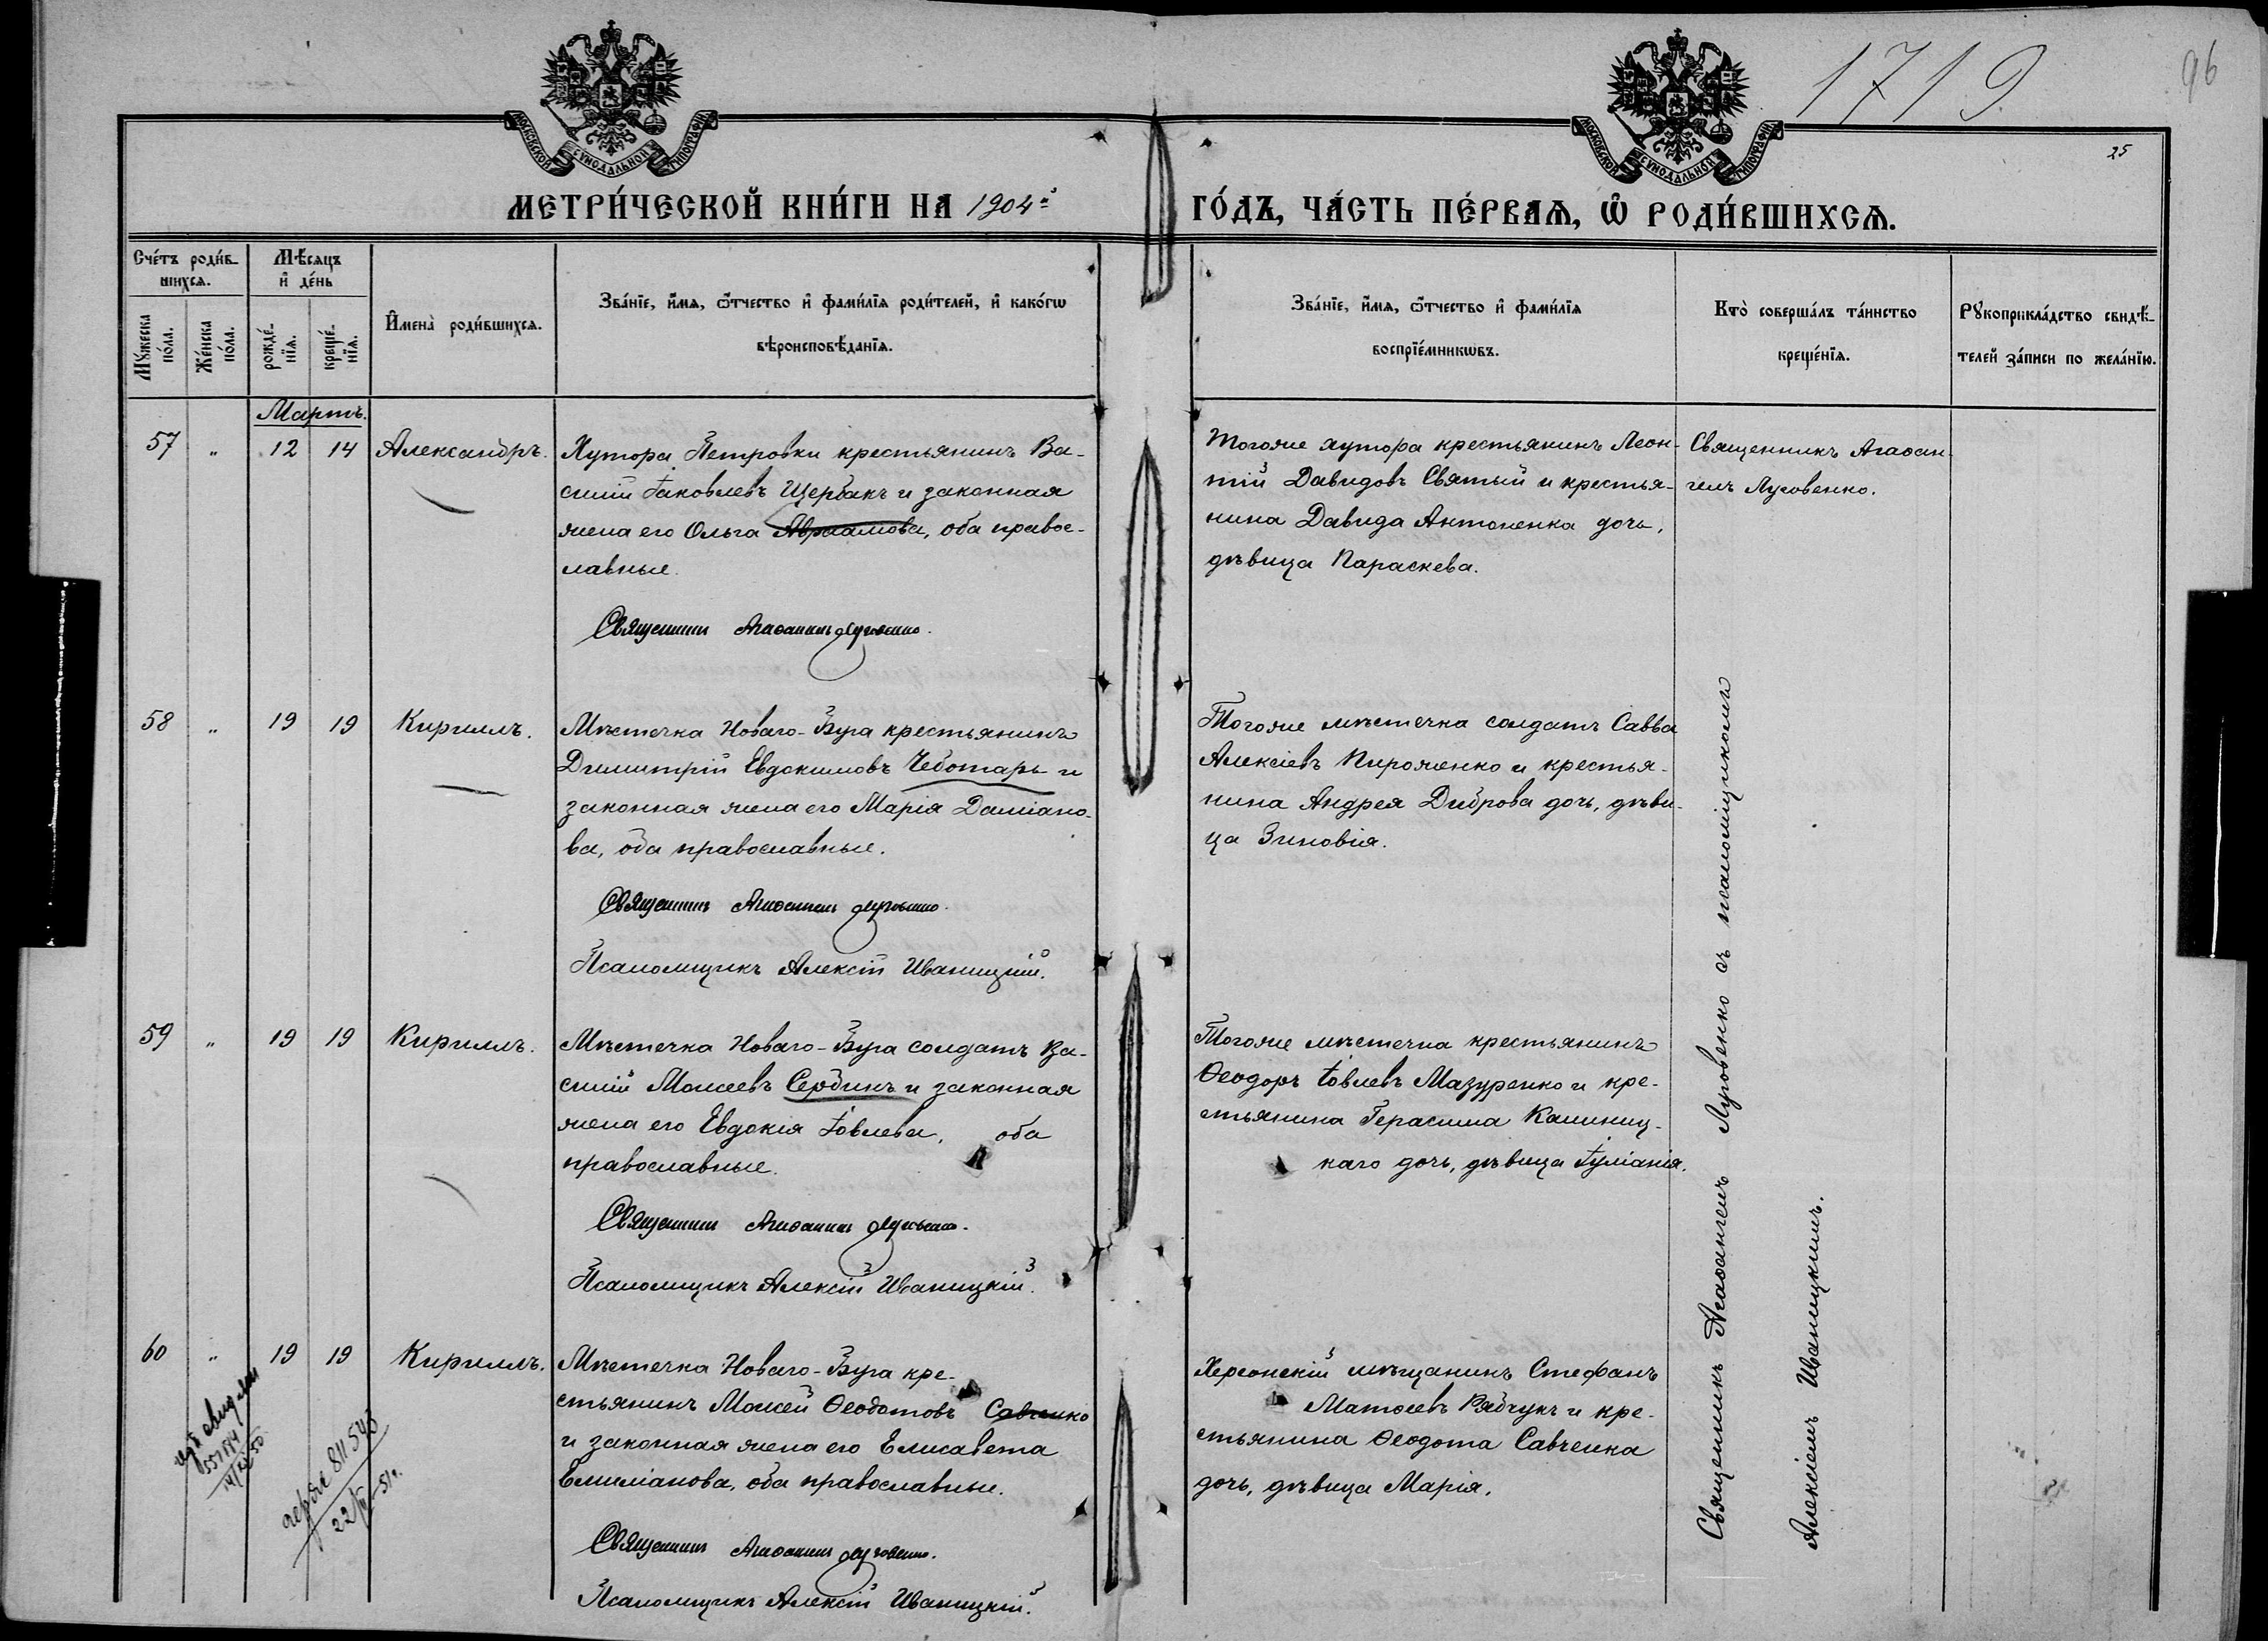 МОСКОВСКОЙ СѴНОДАЛЬНОЙ ТИПОГРАФІИ
МОСКОВСКОЙ СѴНОДАЛЬНОЙ ТИПОГРАФІИ
1719
96
25
МЕТРИ́ЧЕСКОЙ КНИ́ГИ НА 1904й
ГО́ДЪ, ЧА́СТЬ ПЕ́РВАѦ, Ѿ РОДИ́ВШИХСѦ.
Сче́тъ роди́в-
шихсѧ.
Мꙋ́жеска по́ла.
Же́нска по́ла.
Мѣ́сѧцъ
и҆ де́нь
рожде́-
нїѧ.
креще́-
нїѧ.
И҆мена̀ роди́вшихсѧ.
Зва́нїе, и҆́мѧ, ѻ҆́тчество и҆ фами́лїѧ роди́телей, и҆ како́гѡ
вѣроисповѣ́данїѧ.
Зва́нїе, и҆́мѧ, ѻ҆́тчество и҆ фами́лїѧ
воспрїе́мникѡвъ.
Кто̀ соверша́лъ та́инство
креще́нїѧ.
Рꙋкоприкла́дство свидѣ́-
телей за́писи по жела́нїю.
Мартъ.
57 " 12 14 Александръ.
Хутора Петровки крестьянинъ Ва-
силій Іаковлевъ Щербакъ и законная
жена его Ольга Авраамова, оба правос-
лавные.
Священникъ Агаѳангелъ Луговенко.
Тогоже хутора крестьянинъ Леон-
тій Давидовъ Святый и крестья-
нина Давида Антоненка дочь,
дѣвица Параскева.
Священникъ Агаѳан-
гелъ Луговенко.
58 " 19 19 Кириллъ.
Мѣстечка Новаго-Буга крестьянинъ
Димитрій Евдокимовъ Чеботарь и
законная жена его Марія Даміано-
ва, оба православные.
Священникъ Агаѳангелъ Луговенко.
Псаломщикъ Алексій Иваницкій.
Тогоже мѣстечка солдатъ Савва
Алексіевъ Пироженко и крестья-
нина Андрея Диброва дочь, дѣви-
ца Зиновія.
59 " 19 19 Кириллъ.
Мѣстечка Новаго-Буга солдатъ Ва-
силій Моисеевъ Сербинъ и законная
жена его Евдокія Іовлева, оба
православные.
Священникъ Агаѳангелъ Луговенко.
Псаломщикъ Алексій Иваницкій.
Тогоже мѣстечка крестьянинъ
Ѳеодоръ Іовлевъ Мазуренко и кре-
стьянина Герасима Калиниц-
каго дочь, дѣвица Іуліанія.
60 " 19 19 Кириллъ.
Мѣстечка Новаго-Буга кре-
стьянинъ Моисей Ѳеодотовъ Савченко
и законная жена его Елисавета
Емиліанова, оба православные.
Священникъ Агаѳангелъ Луговенко.
Псаломщикъ Алексій Иваницкій.
Херсонскій мѣщанинъ Стефанъ
Матѳеевъ Рябчукъ и кре-
стьянина Ѳеодота Савченка
дочь, дѣвица Марія.
Священникъ Агаѳангелъ Луговенко съ псаломщикомъ
Алексіемъ Иваницкимъ.